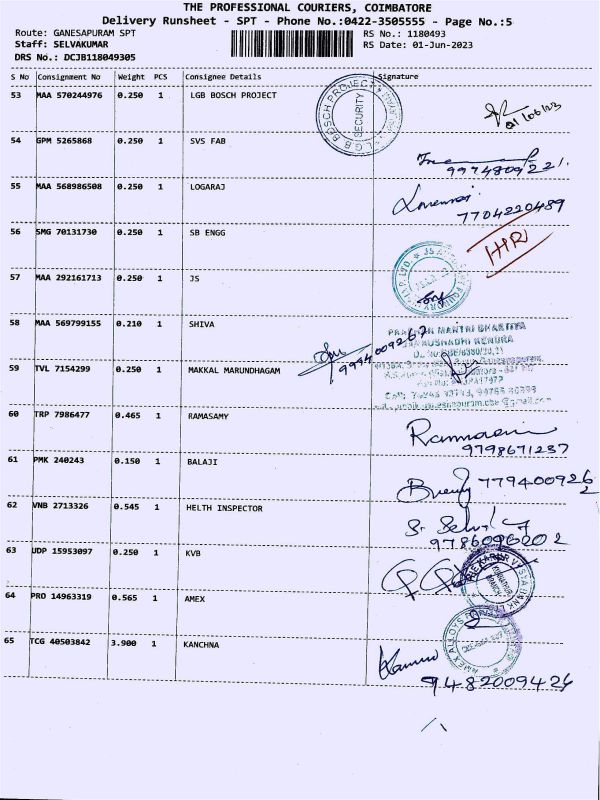 THE PROFESSIONAL COURIERS, COIMBATORE
Delivery Runsheet - SPT - Phone No.:0422-3505555 - Page No.:5
Route: GANESAPURAM SPT RS No.: 1180493
Staff: SELVAKUMAR RS Date: 01-Jun-2023
DRS No.: DCJB118049305
S No Consignment No Weight PCS Consignee Details Signature
53 MAA 570244976 0.250 1 LGB BOSCH PROJECT
L.G.B BOSCH PROJECT
SECURITY
01/06/23
54 GPM 5265868 0.250 1 SVS FAB
9974809221.
55 MAA 568986508 0.250 1 LOGARAJ
7704220489
56 SMG 70131730 0.250 1 SB ENGG
HRI
57 MAA 292161713 0.250 1 JS
58 MAA 569799155 0.210 1 SHIVA
9994009262
PRADHAN MANTRI BHARTIYA
JANAUSHADHI KENDRA
59 TVL 7154299 0.250 1 MAKKAL MARUNDHAGAM
60 TRP 7986477 0.465 1 RAMASAMY
9798671237
61 PMK 240243 0.150 1 BALAJI
7794009262
62 VNB 2713326 0.545 1 HELTH INSPECTOR
9786096202
63 UDP 15953097 0.250 1 KVB
64 PRO 14963319 0.565 1 AMEX
65 TCG 40503842 3.900 1 KANCHNA
9482009426